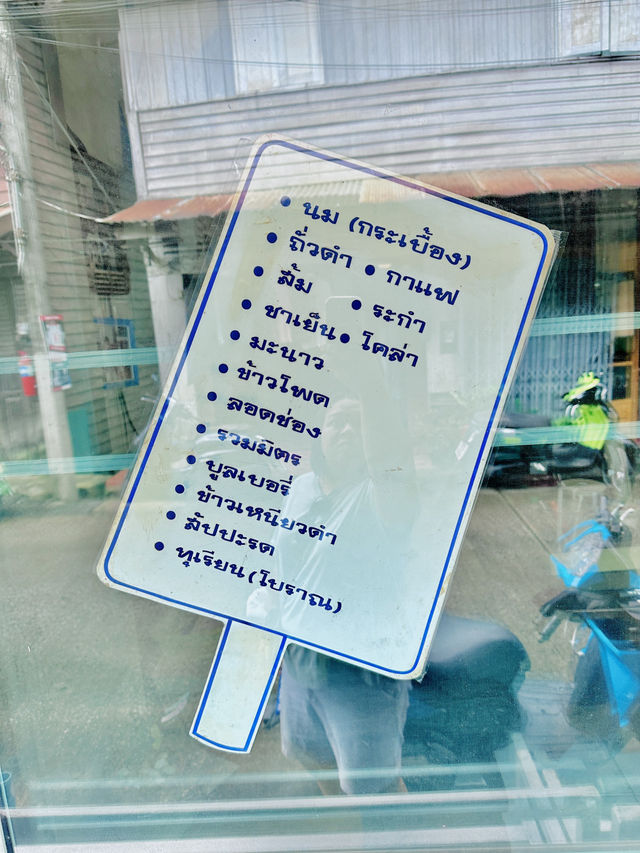 • นม (กระเบื้อง)
• ถั่วดำ • กาแฟ
• ส้ม • ระกำ
• ชาเย็น • โคล่า
• มะนาว
• ข้าวโพด
• ลอดช่อง
• รวมมิตร
• บูลเบอรี่
• ข้าวเหนียวดำ
• สัปปะรด
• ทุเรียน (โบราณ)